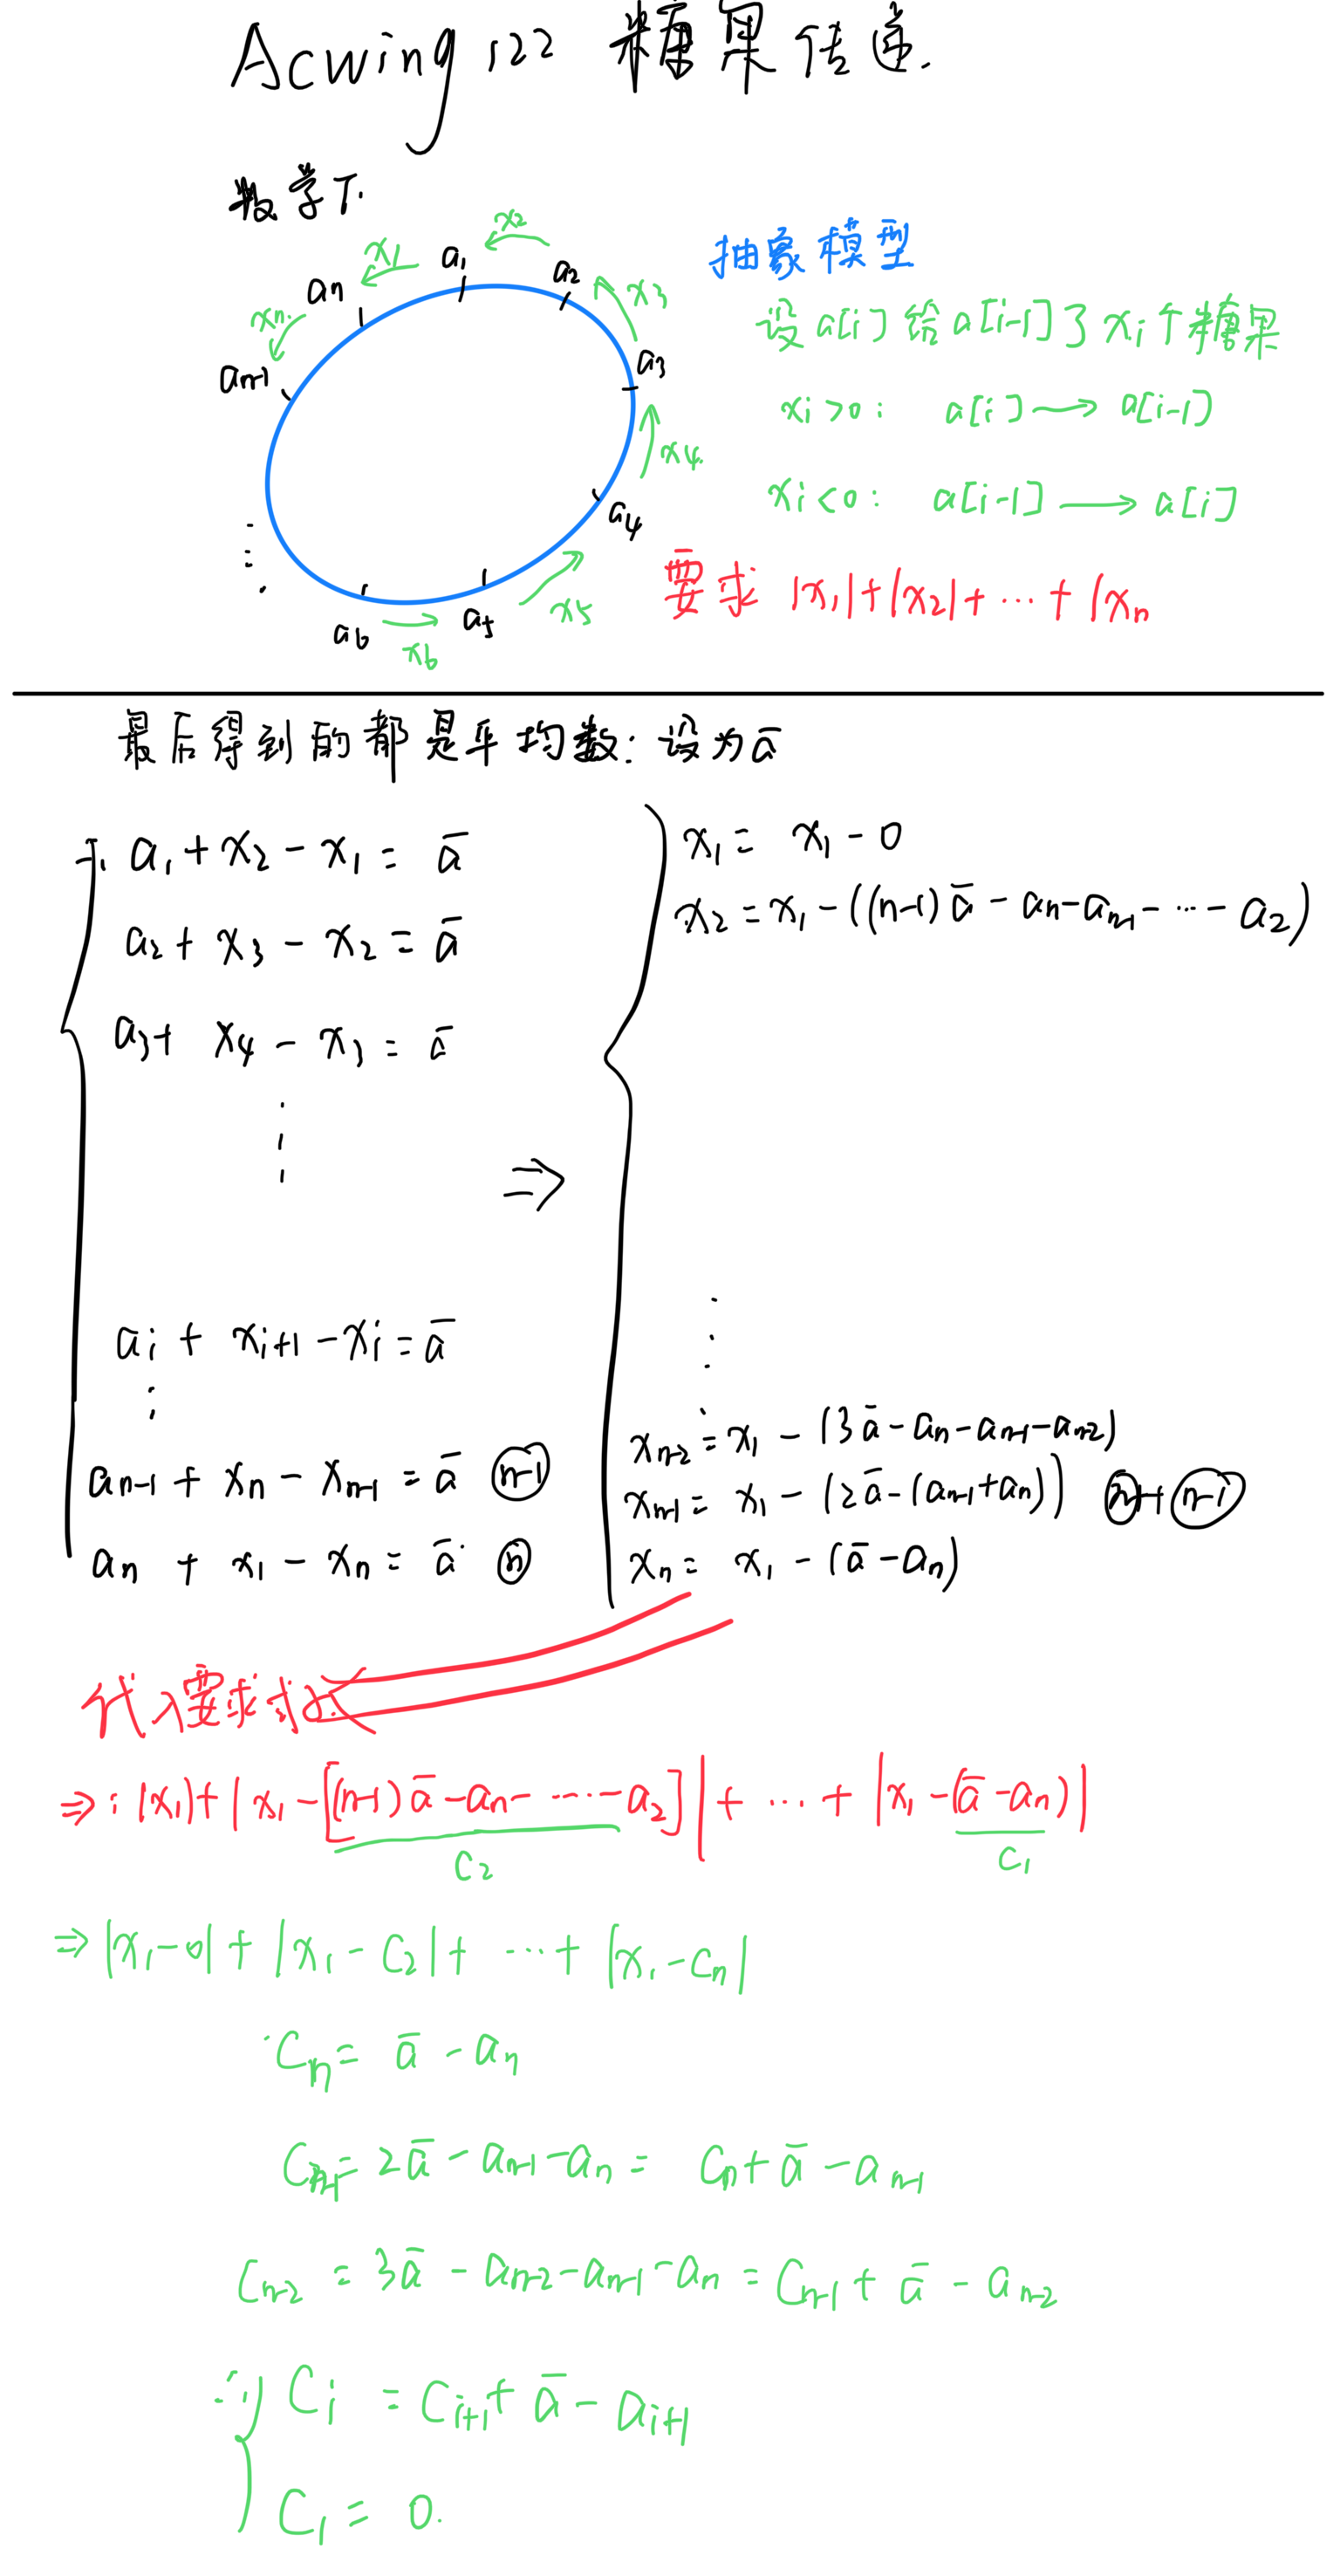 Acwing 122 糖果传递.
数学下.
x₂
x₁
a₁
a₂
aₙ
x₃
xₙ
a₃
aₙ₋₁
x₄
a₄
⋮
x₅
a₅
a₆
x₆
抽象模型
设a[i]给a[i-1]了xᵢ个糖果
xᵢ>0: a[i] → a[i-1]
xᵢ<0: a[i-1] → a[i]
要求 |x₁|+|x₂|+ ⋯ + |xₙ
最后得到的都是平均数: 设为ā
∴ a₁ + x₂ - x₁ = ā
a₂ + x₃ - x₂ = ā
a₃ + x₄ - x₃ = ā
⋮
⇒
aᵢ + xᵢ₊₁ - xᵢ = ā
⋮
aₙ₋₁ + xₙ - xₙ₋₁ = ā ⓝ₋₁
aₙ + x₁ - xₙ = ā ⓝ
x₁ = x₁ - 0
x₂ = x₁ - ((n-1)ā - aₙ - aₙ₋₁ - ⋯ - a₂)
⋮
xₙ₋₂ = x₁ - (3ā - aₙ - aₙ₋₁ - aₙ₋₂)
xₙ₋₁ = x₁ - (2ā - (aₙ₋₁ + aₙ)) ⓝ + (n-1)
xₙ = x₁ - (ā - aₙ)
代入要求式
⇒: |x₁| + |x₁ - [(n-1)ā - aₙ - ⋯ - a₂]| + ⋯ + |x₁ - (ā - aₙ)|
C₂ C₁
⇒ |x₁ - 0| + |x₁ - C₂| + ⋯ + |x₁ - Cₙ|
Cₙ = ā - aₙ
Cₙ₋₁ = 2ā - aₙ₋₁ - aₙ = Cₙ + ā - aₙ₋₁
Cₙ₋₂ = 3ā - aₙ₋₂ - aₙ₋₁ - aₙ = Cₙ₋₁ + ā - aₙ₋₂
∴ Cᵢ = Cᵢ₊₁ + ā - aᵢ₊₁
C₁ = 0.